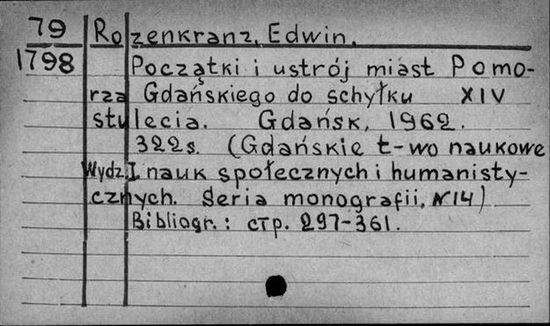 79
1798
Rozenkranz, Edwin.
Początki i ustrój miast Pomo-
rza Gdańskiego do schyłku XIV
stulecia. Gdańsk, 1962.
322s. (Gdańskie t-wo naukowe
Wydz. I nauk społecznych i humanisty-
cznych. Seria monografii, N14)
Bibliogr.: стр. 297-361.